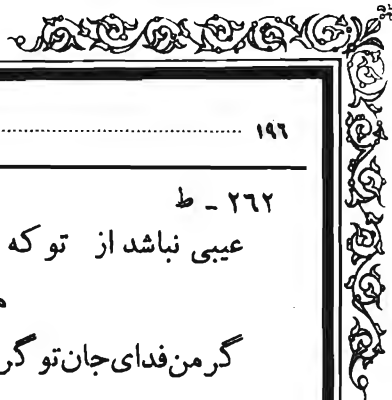 ۱۹٦
۲٦۲ - ط
عیبی نباشد از تو که
گر من فدای جان تو گر